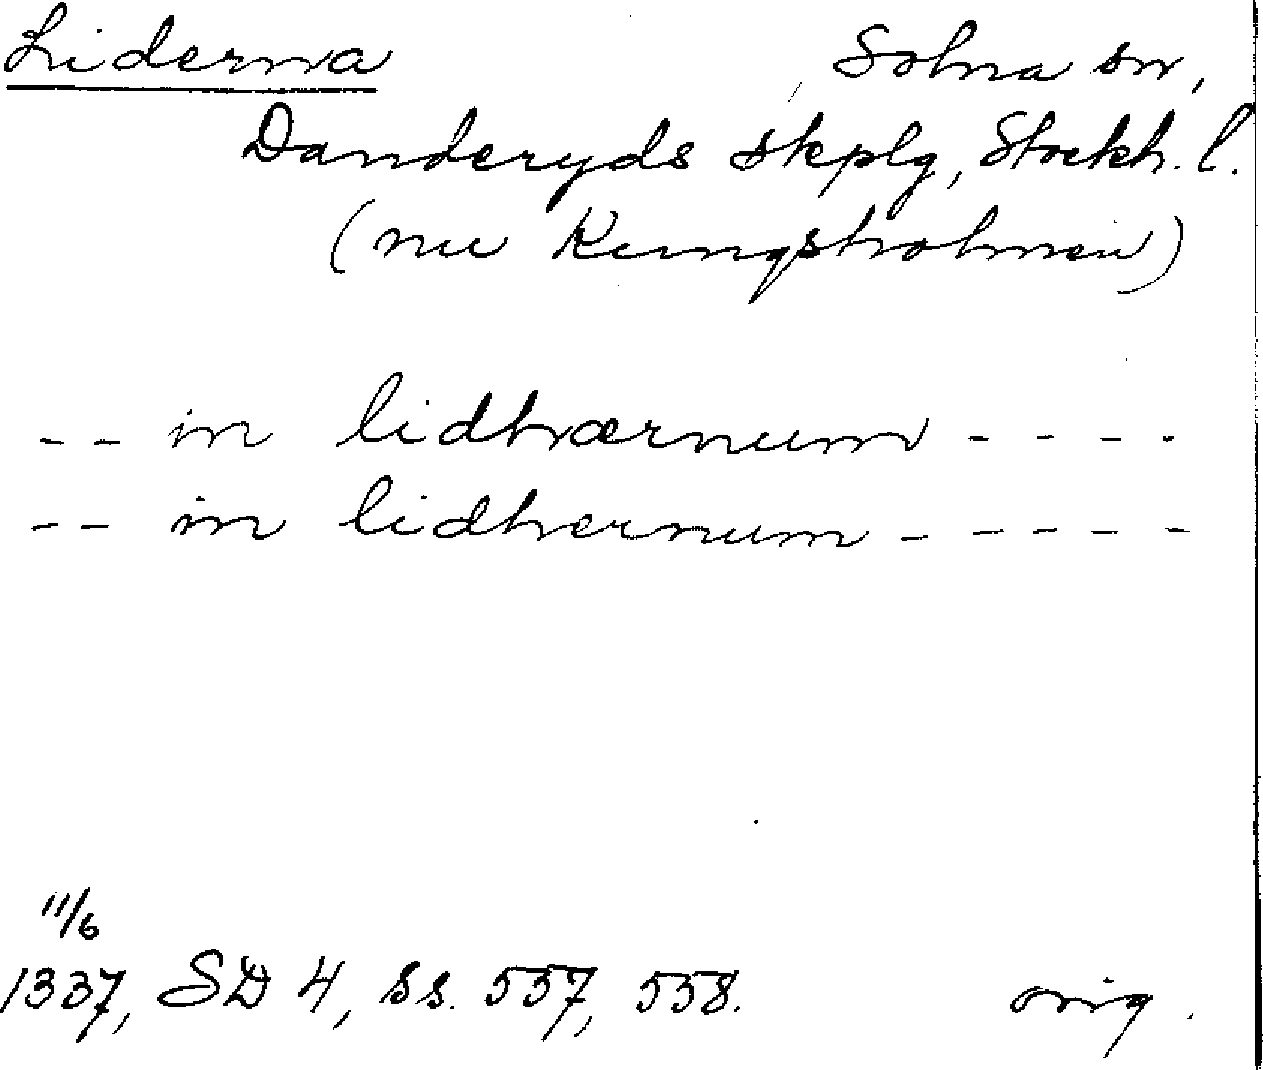 Liderna Solna sn,
Danderyds skplg, Stockh. l.
(nu Kungsholmen)
-- in lidhærnum ----
-- in lidhernum -----
11/6
1337, SD 4, ss. 557, 558. orig.